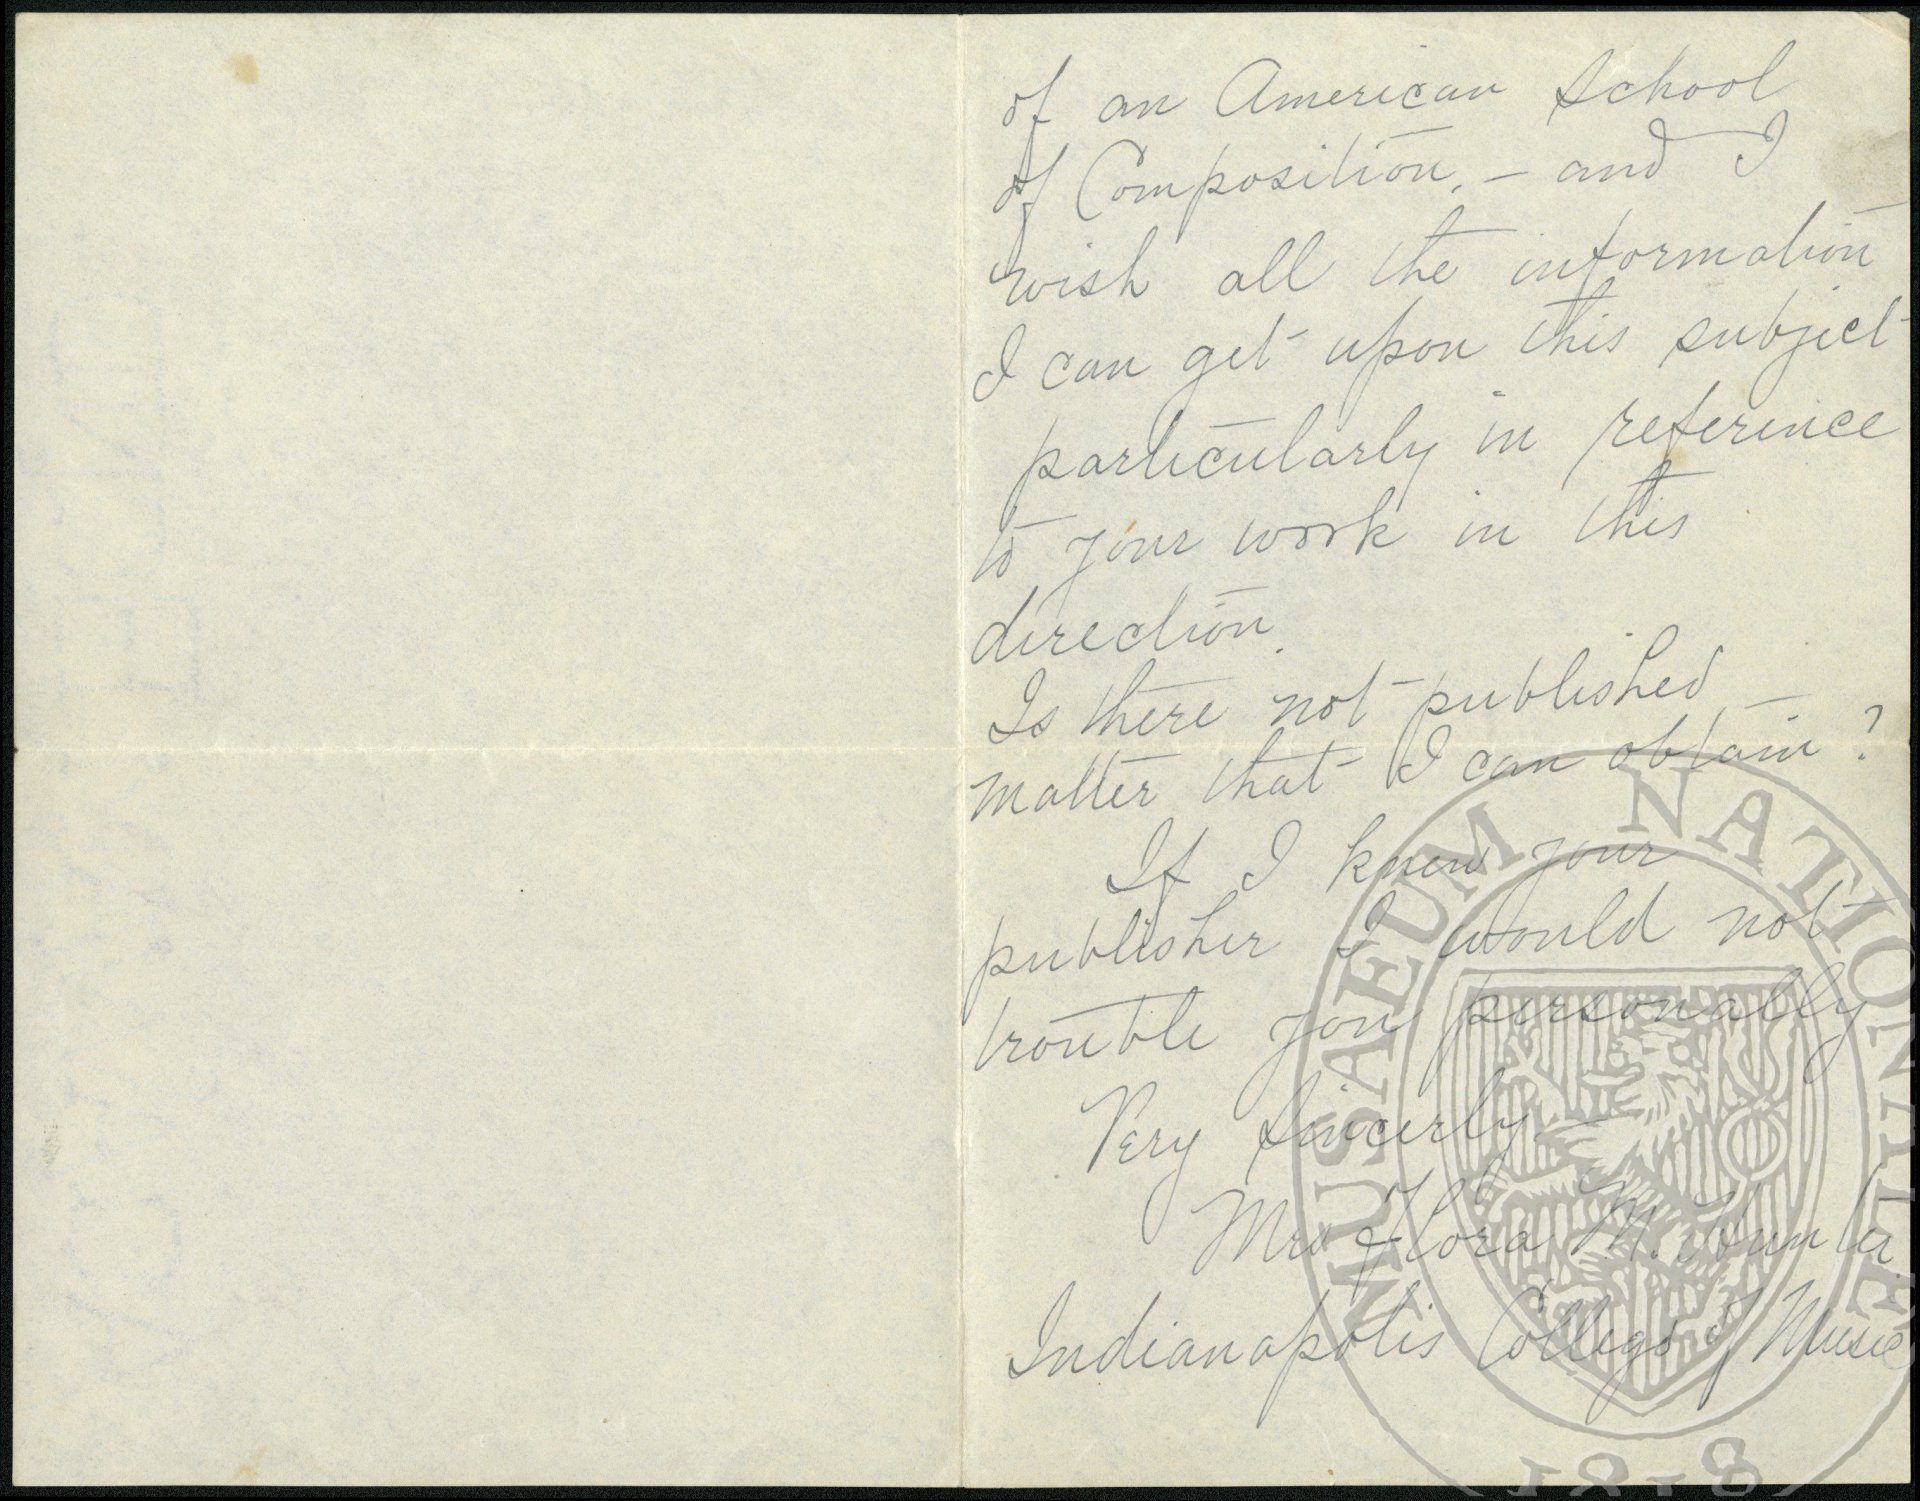 of an American School
of Composition, – and I
wish all the information
I can get upon this subject
particularly in reference
to your work in this
direction.
Is there not published
matter that I can obtain?
If I knew your
publisher I would not
trouble you personally
Very Sincerly
Mrs Flora M. Hunter
Indianapolis College of Music
MUSAEUM NATIONALE
1818